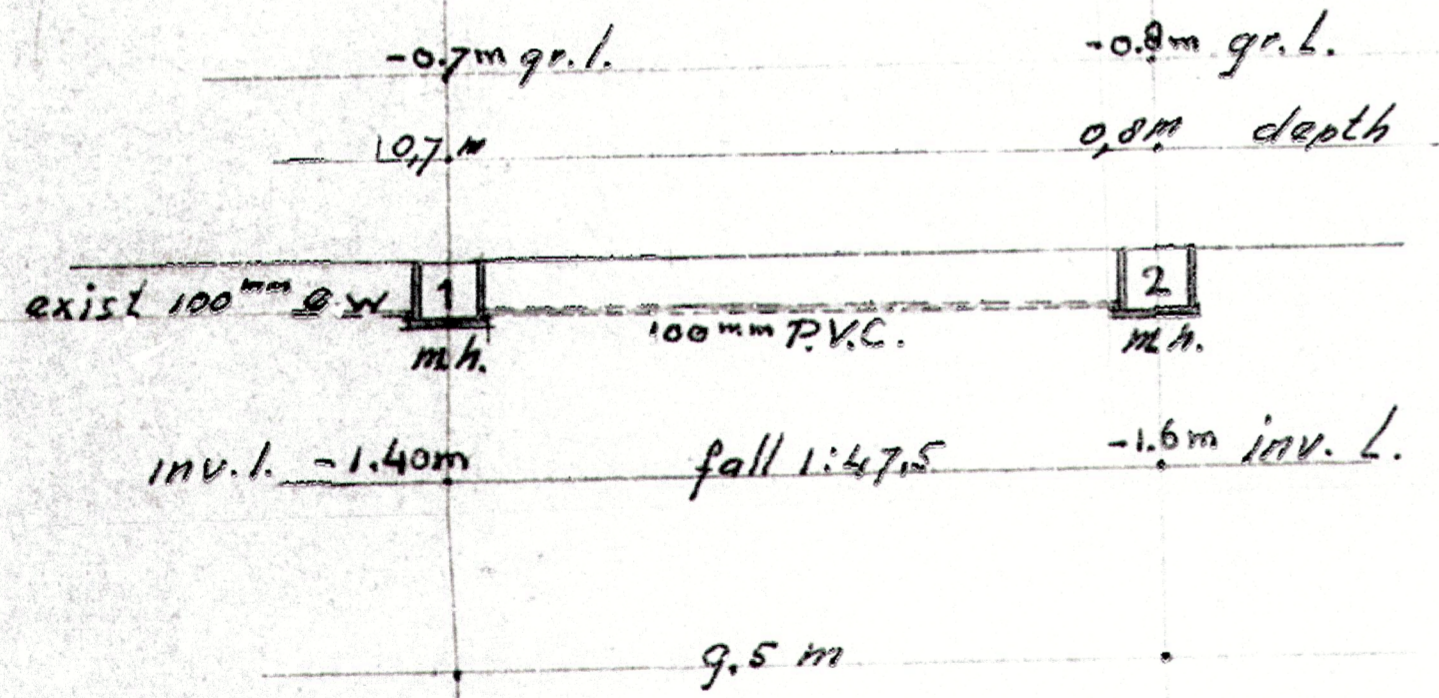 -0.7m gr.l. -0.8m gr.L.
0,7m 0,8m depth
exist 100mm e.w 1 2
100mm P.V.C.
m.h. m.h.
inv.l. -1.40m fall 1:47,5 -1.6m inv. L.
9.5 m